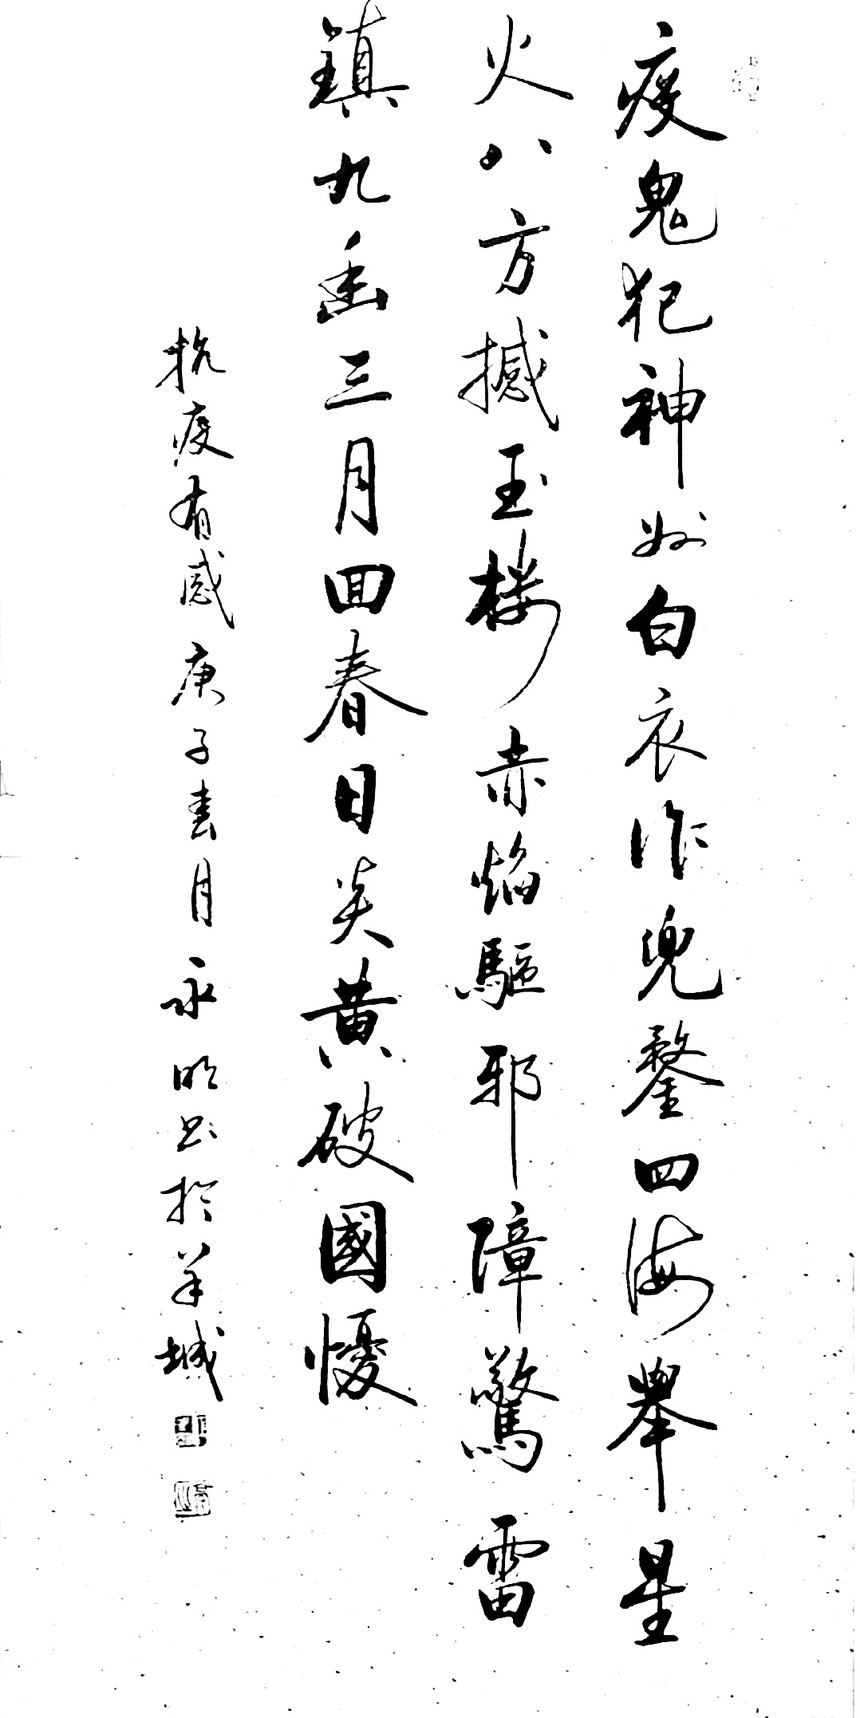 疫鬼犯神州白衣作兜鍪四海舉星
火八方撼玉楼赤焰驅邪障驚雷
鎮九幽三月回春日炎黄破國憂
抗疫有感庚子春月永明书於羊城